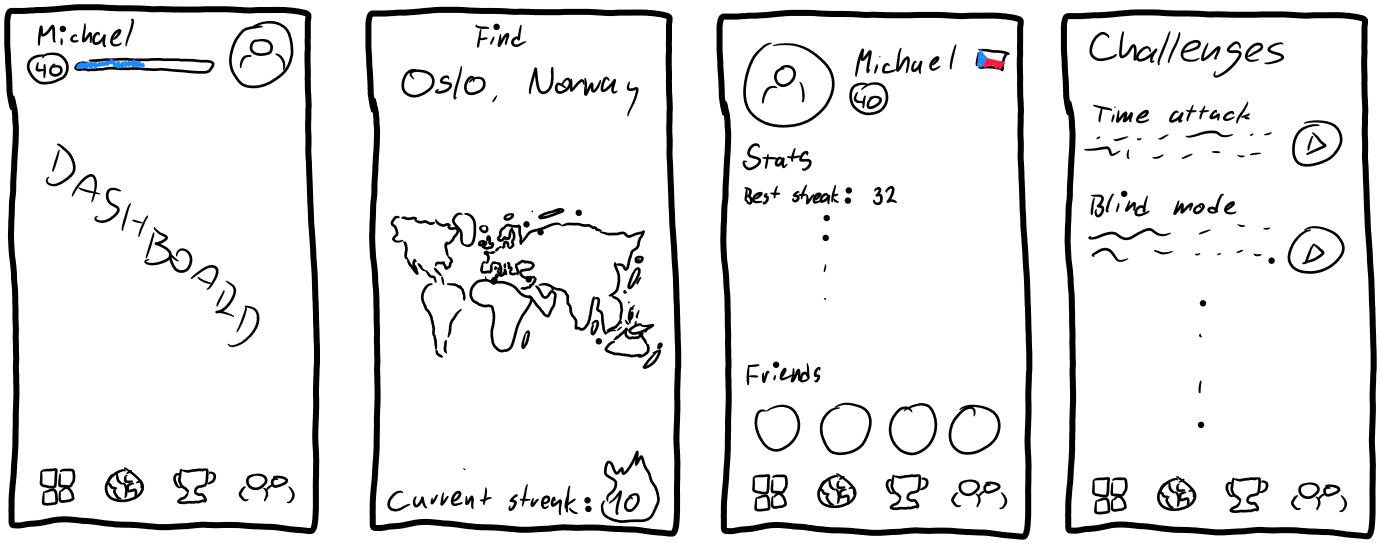 Michael
40
DASHBOARD
Find
Oslo, Norway
Current streak: 10
Michael
40
Stats
Best streak: 32
Friends
Challenges
Time attack
Blind mode